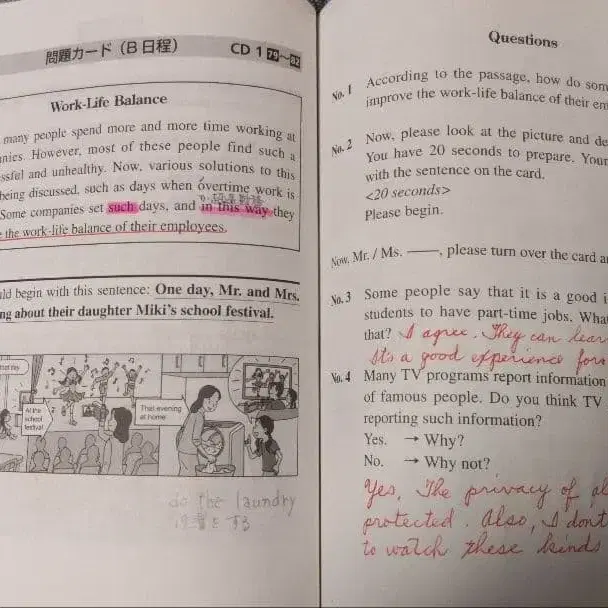 問題カード（B 日程）
CD 1 79～82
Work-Life Balance
many people spend more and more time working at
nies. However, most of these people find such a
ssful and unhealthy. Now, various solutions to this
being discussed, such as days when overtime work is
Some companies set such days, and in this way they
the work-life balance of their employees.
uld begin with this sentence: One day, Mr. and Mrs.
ng about their daughter Miki's school festival.
At the
school
festival
That evening
at home
do the laundry
Questions
No. 1 According to the passage, how do som
improve the work-life balance of their em
No. 2 Now, please look at the picture and de
You have 20 seconds to prepare. Your
with the sentence on the card.
<20 seconds>
Please begin.
Now, Mr. / Ms. ——, please turn over the card a
No. 3 Some people say that it is a good i
students to have part-time jobs. Wha
that? I agree. They can lear
It's a good experience for
No. 4 Many TV programs report information
of famous people. Do you think TV
reporting such information?
Yes. → Why?
No. → Why not?
Yes, The privacy of al
protected. Also, I don't
to watch these kinds